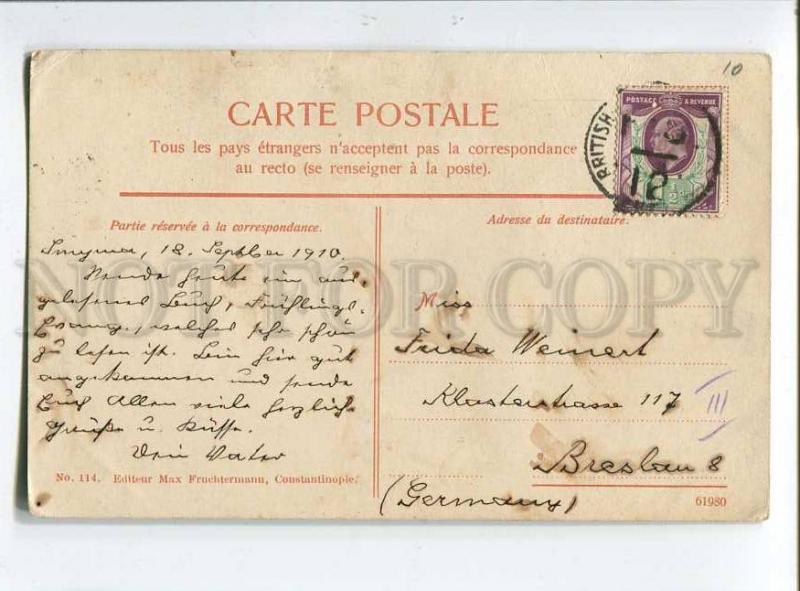 10
CARTE POSTALE
Tous les pays étrangers n'acceptent pas la correspondance
au recto (se renseigner à la poste).
POSTAGE & REVENUE
BRITISH
12
Partie réservée à la correspondance.
Smyrna, 18. Septber 1910.
Sende heute ein aus-
gelesenes Buch, Frühlings-
welches sehr schön
zu lesen ist. Bin hier gut
angekommen und sende
Euch Allen viele herzlich
Grüße u. Küsse.
Dein Vater
Adresse du destinataire.
Miss
Frida Weinert
Klosterstrasse 117 III
Breslau 8
(Germany)
No. 114. Editeur Max Fruchtermann, Constantinople.
61980
NOT FOR COPY